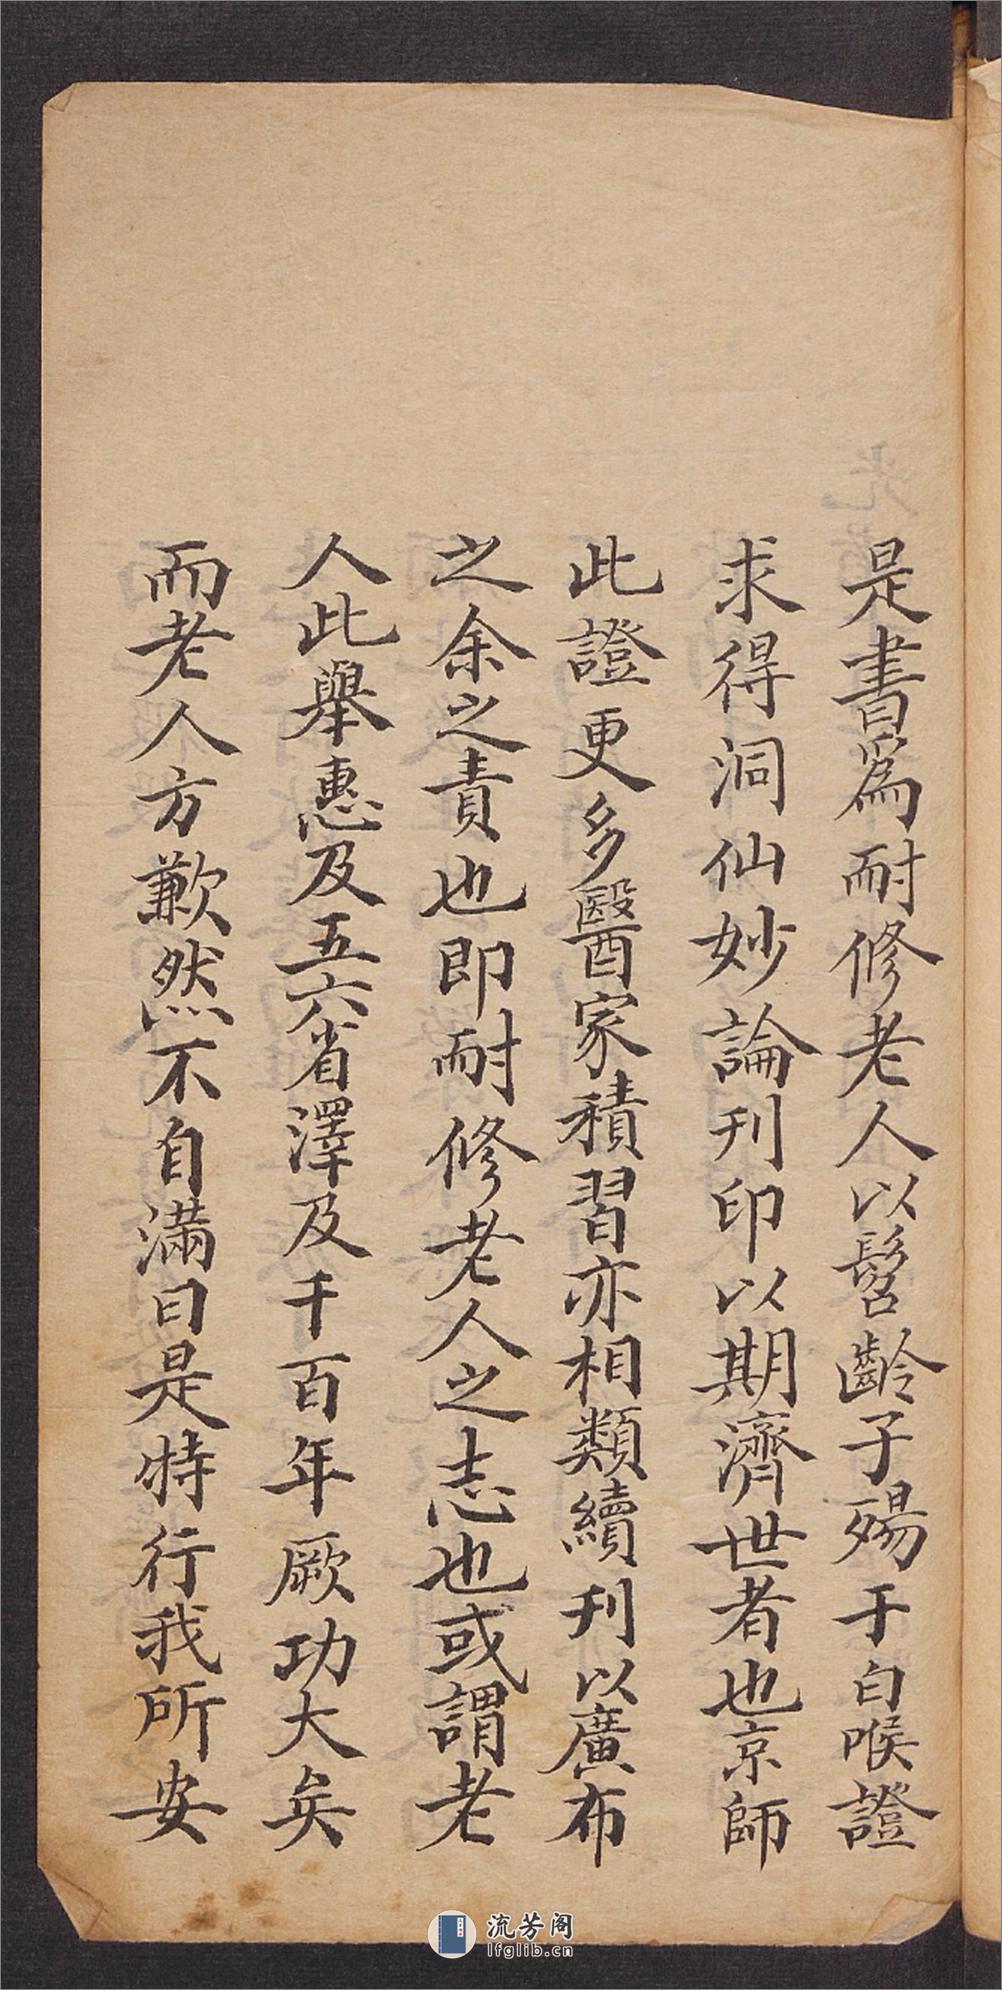 是書爲耐修老人以髫齡子殤于白喉證
求得洞仙妙論刊印以期濟世者也京師
此證更多醫家積習亦相類續刊以廣布
之余之責也即耐修老人之志也或謂老
人此舉惠及五六省澤及千百年厥功大矣
而老人方歉然不自滿曰是特行我所安
流芳阁
lfglib.cn